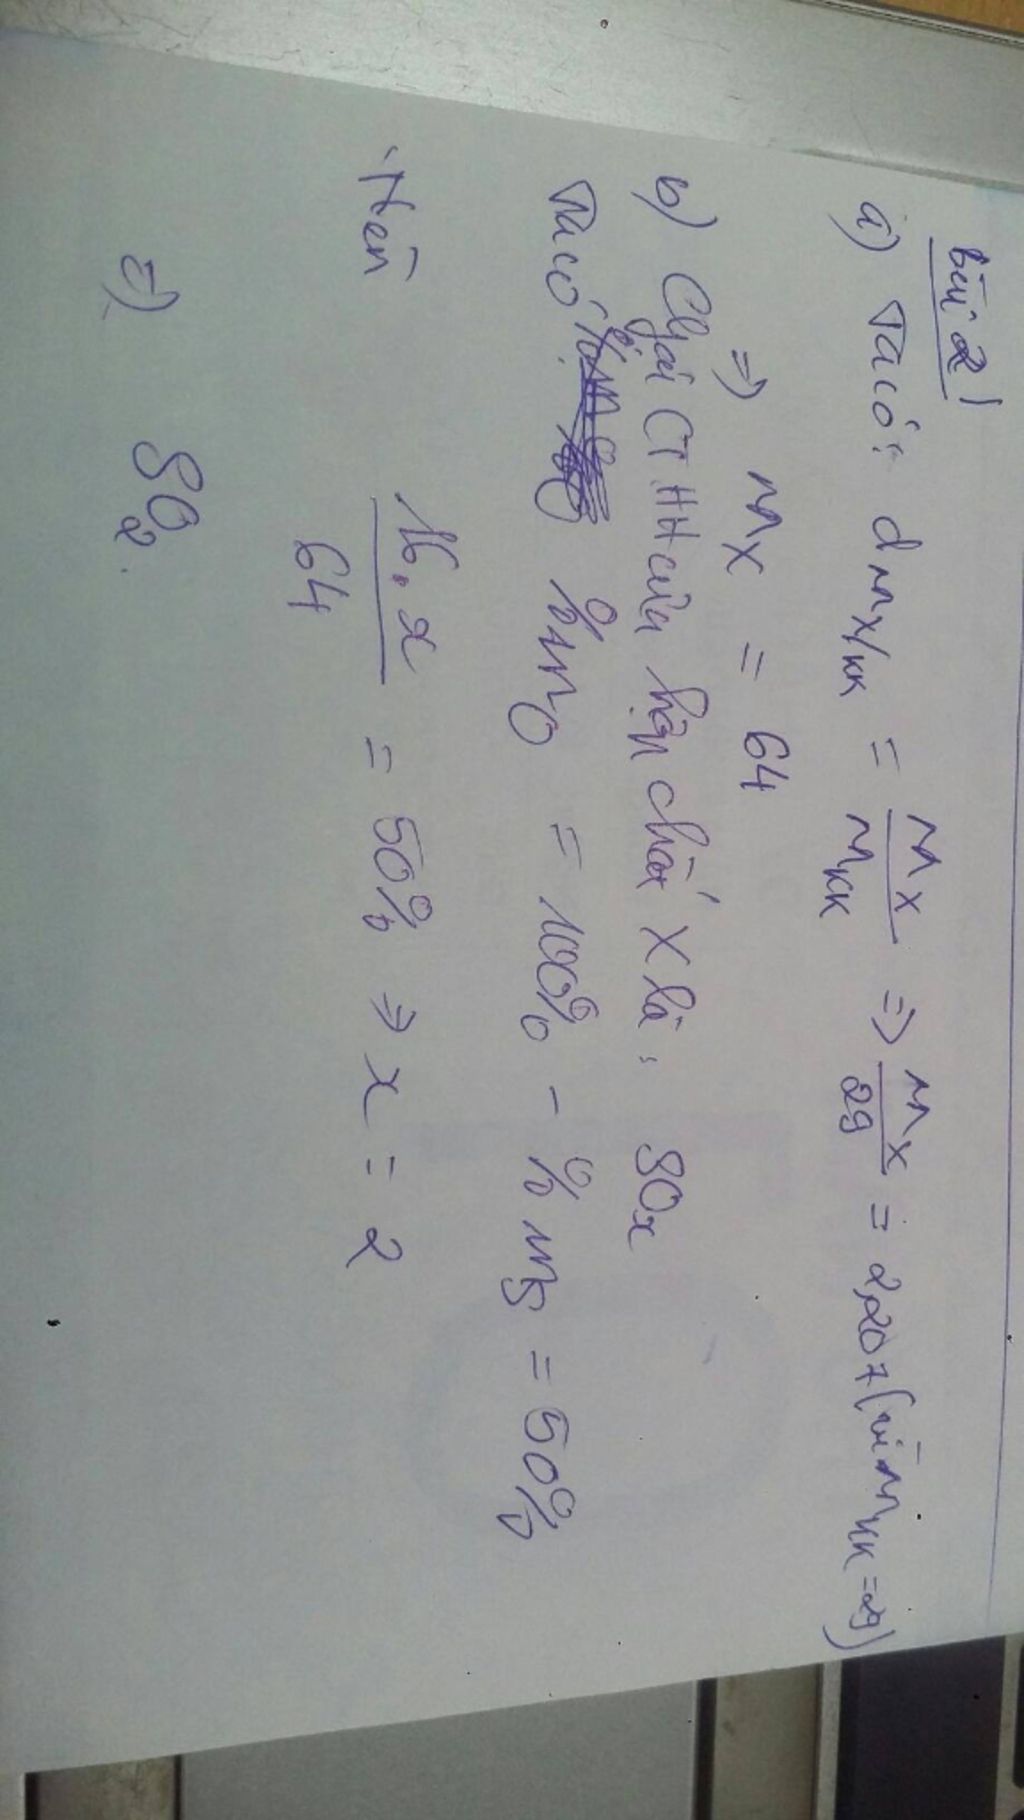 Bài 2
a) Ta có: dMX/KK = MX/MKK => MX/29 = 2,207 (vì MKK = 29)
=> MX = 64
b) Gọi CTHH của hợp chất X là: SOx
Ta có: %mO = 100% - %mS = 50%
Nên 16.x/64 = 50% => x = 2
=) SO2.